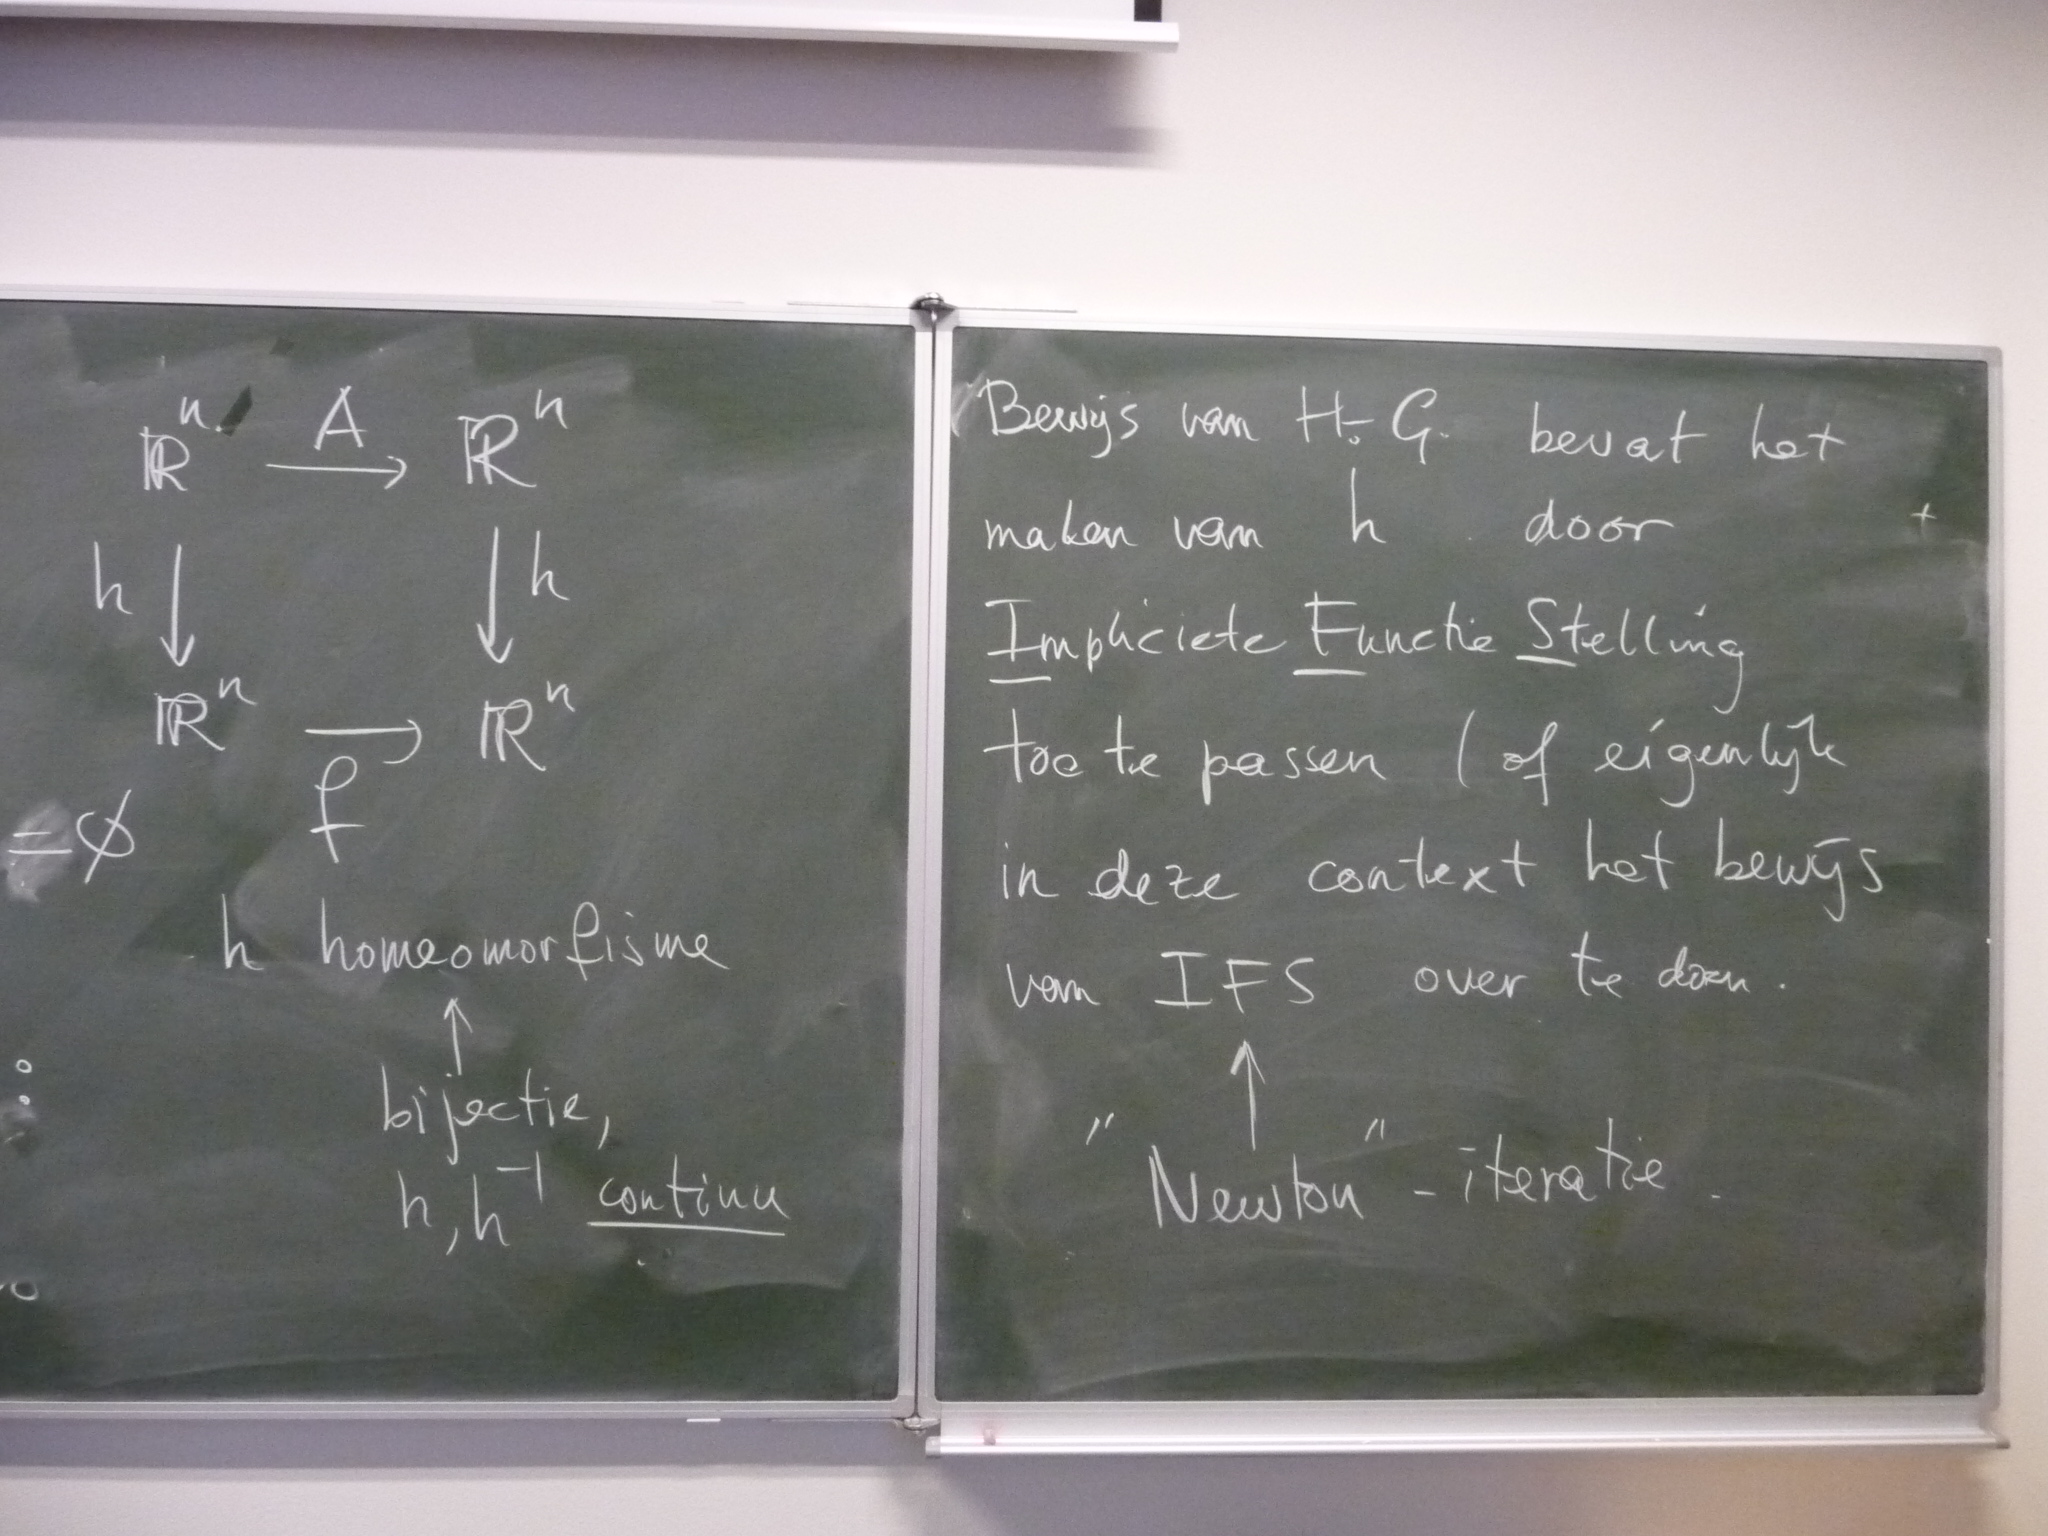 ℝⁿ A ℝⁿ
h h
ℝⁿ f ℝⁿ
= ∅
h homeomorfisme
bijectie,
h, h⁻¹ continu
Bewijs van H.-G. bevat het
maken van h door
Impliciete Functie Stelling
toe te passen ( of eigenlijk
in deze context het bewijs
van IFS over te doen.
"Newton"-iteratie.